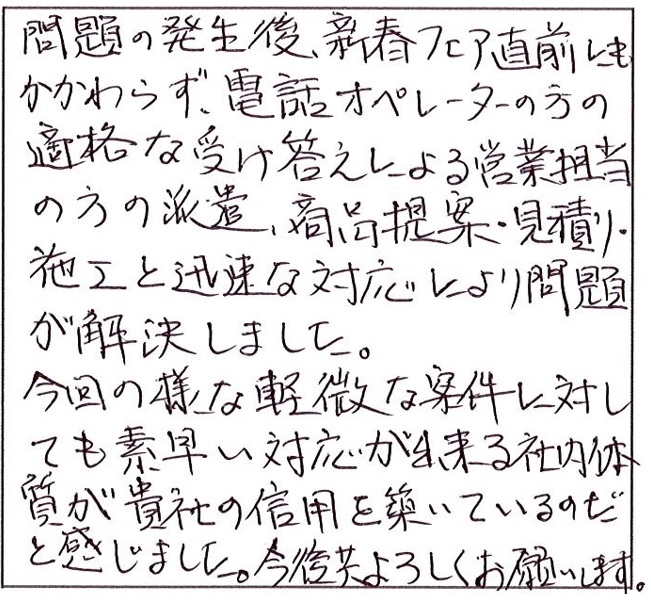 問題の発生後、新春フェア直前にも
かかわらず、電話オペレーターの方の
適格な受け答えによる営業担当
の方の派遣、商品提案・見積り・
施工と迅速な対応により問題
が解決しました。
今回の様な軽微な案件に対し
ても素早い対応が出来る社内体
質が貴社の信用を築いているのだ
と感じました。今後共よろしくお願いします。